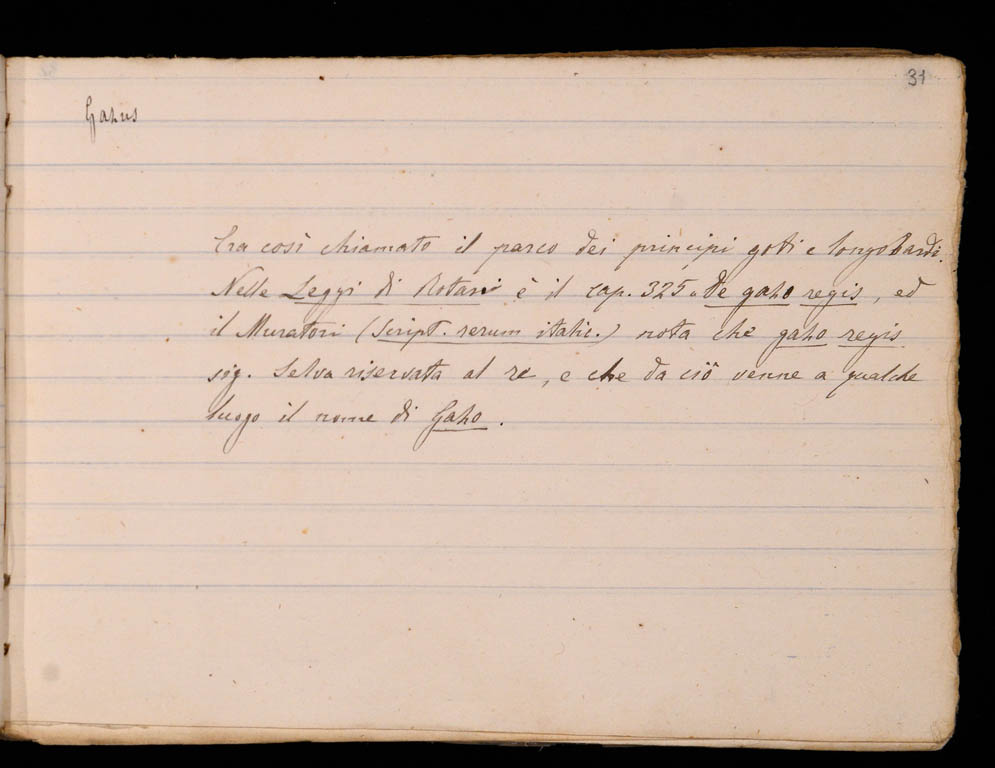 31
Gahus
Era così chiamato il parco dei principi goti e longobardi.
Nelle Leggi di Rotari è il cap. 325 "de gaho regis, ed
il Muratori (Script. rerum italic.) nota che gaho regis
sig. selva riservata al re, e che da ciò venne a qualche
luogo il nome di Gaho.